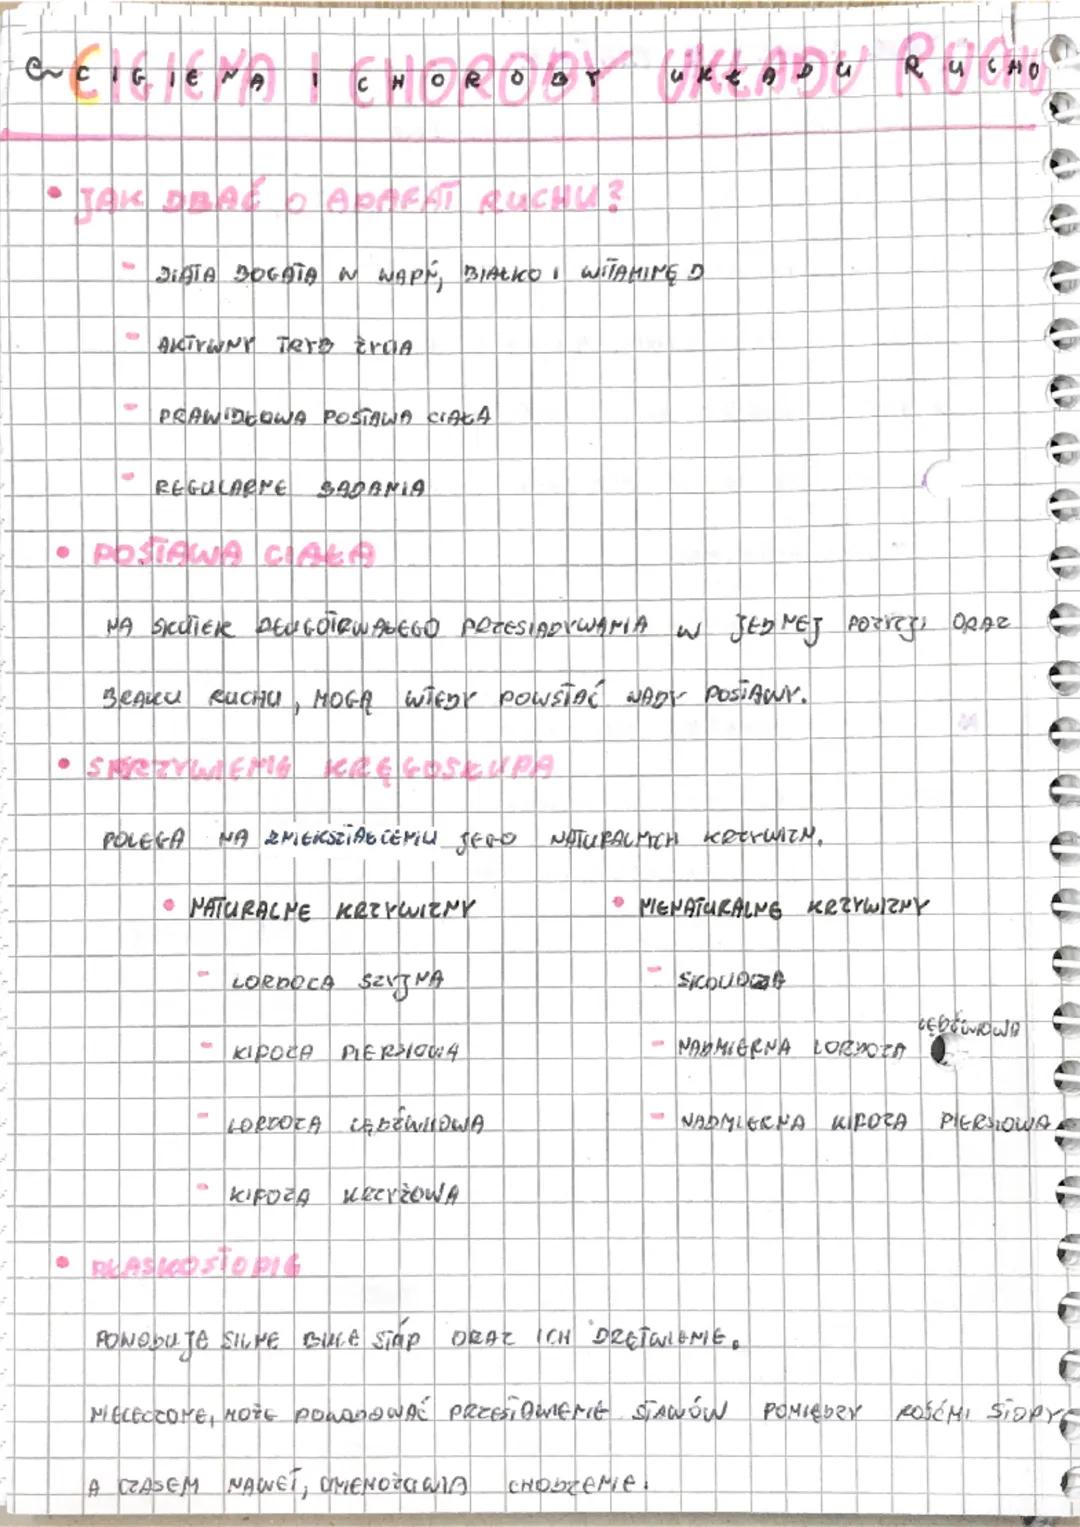 CIGIENA I CHOROBY UKŁADU RUCHU
• JAK DBAĆ O APARAT RUCHU?
- DIETA BOGATA W WAPŃ, BIAŁKO I WITAMINĘ D
- AKTYWNY TRYB ŻYCIA
- PRAWIDŁOWA POSTAWA CIAŁA
- REGULARNE BADANIA
• POSTAWA CIAŁA
NA SKUTEK DŁUGOTRWAŁEGO PRZESIADYWANIA W JEDNEJ POZYCJI ORAZ
BRAKU RUCHU, MOGĄ WTEDY POWSTAĆ WADY POSTAWY.
• SKRZYWIENIE KRĘGOSŁUPA
POLEGA NA ZNIEKSZTAŁCENIU JEGO NATURALNYCH KRZYWIZN.
• NATURALNE KRZYWIZNY
- LORDOZA SZYJNA
- KIFOZA PIERSIOWA
- LORDOZA LĘDŹWIOWA
- KIFOZA KRZYŻOWA
• NIENATURALNE KRZYWIZNY
- SKOLIOZA
- NADMIERNA LORDOZA LĘDŹWIOWA
- NADMIERNA KIFOZA PIERSIOWA
• PŁASKOSTOPIE
POWODUJE SILNE BÓLE STÓP ORAZ ICH DRĘTWIENIE.
NIELECZONE, MOŻE POWODOWAĆ PRZESTAWIENIE STAWÓW POMIĘDZY KOŚĆMI STOPY
A CZASEM NAWET, UNIEMOŻLIWIA CHODZENIE.